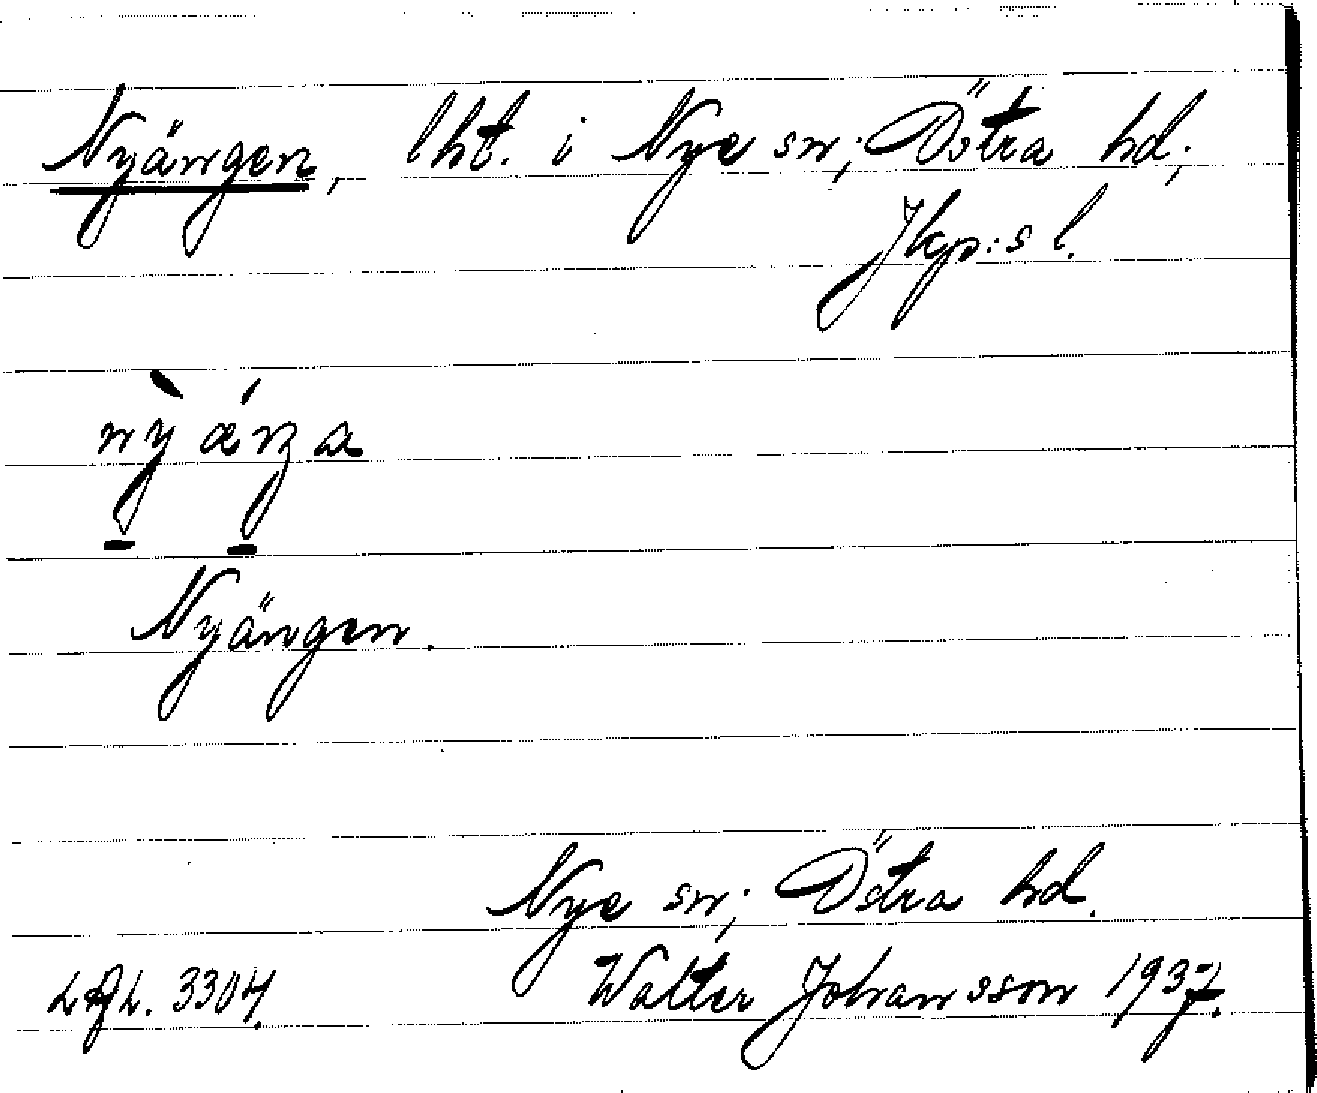 Nyängen, lht. i Nye sn; Östra hd;
Jkp:s l.
nỳ ǽŋa
Nyängen.
Nye sn; Östra hd.
Walter Johansson 1937.
3304.